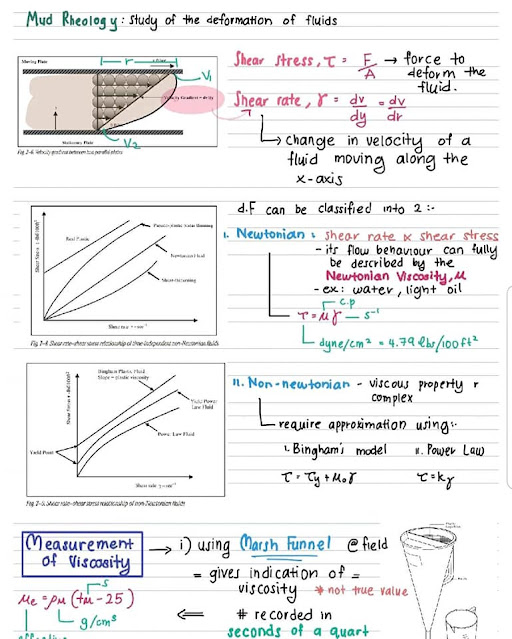 Mud Rheology : study of the deformation of fluids
Moving Plate
r
V1
Velocity Gradient = dv/dy
V2
Stationary Plate
Fig 2-6. Velocity gradient between two parallel plates
Shear stress, τ = F/A → force to
deform the
fluid.
Shear rate, γ = dv/dy = dv/dr
change in velocity of a
fluid moving along the
x-axis
d.F can be classified into 2 :-
Shear Stress
Real Plastic
Pseudo-plastic
Newtonian Fluid
Shear-thickening
Shear rate
Fig. 2-4. Shear rate-shear stress relationship of time-independent non-Newtonian fluids
I. Newtonian : shear rate ∝ shear stress
- its flow behaviour can fully
be described by the
Newtonian Viscosity, μ
- ex: water, light oil
c.p
τ = μγ — s⁻¹
dyne/cm² = 4.79 lbs/100 ft²
Bingham Plastic Fluid
Slope = plastic viscosity
Yield Power
Law Fluid
Power Law Fluid
Yield Point
Shear Stress
Shear rate
Fig. 2-5. Shear rate-shear stress relationship of non-Newtonian fluids
II. Non-newtonian - viscous property r
complex
require approximation using:-
I. Bingham's model II. Power Law
τ = τy + μ₀γ τ = kγ
Measurement
of Viscosity
→ i) using Marsh Funnel @ field
= gives indication of =
viscosity * not true value
s
μe = ρμ (tμ - 25)
g/cm³
⇐ # recorded in
seconds of a quart
effective